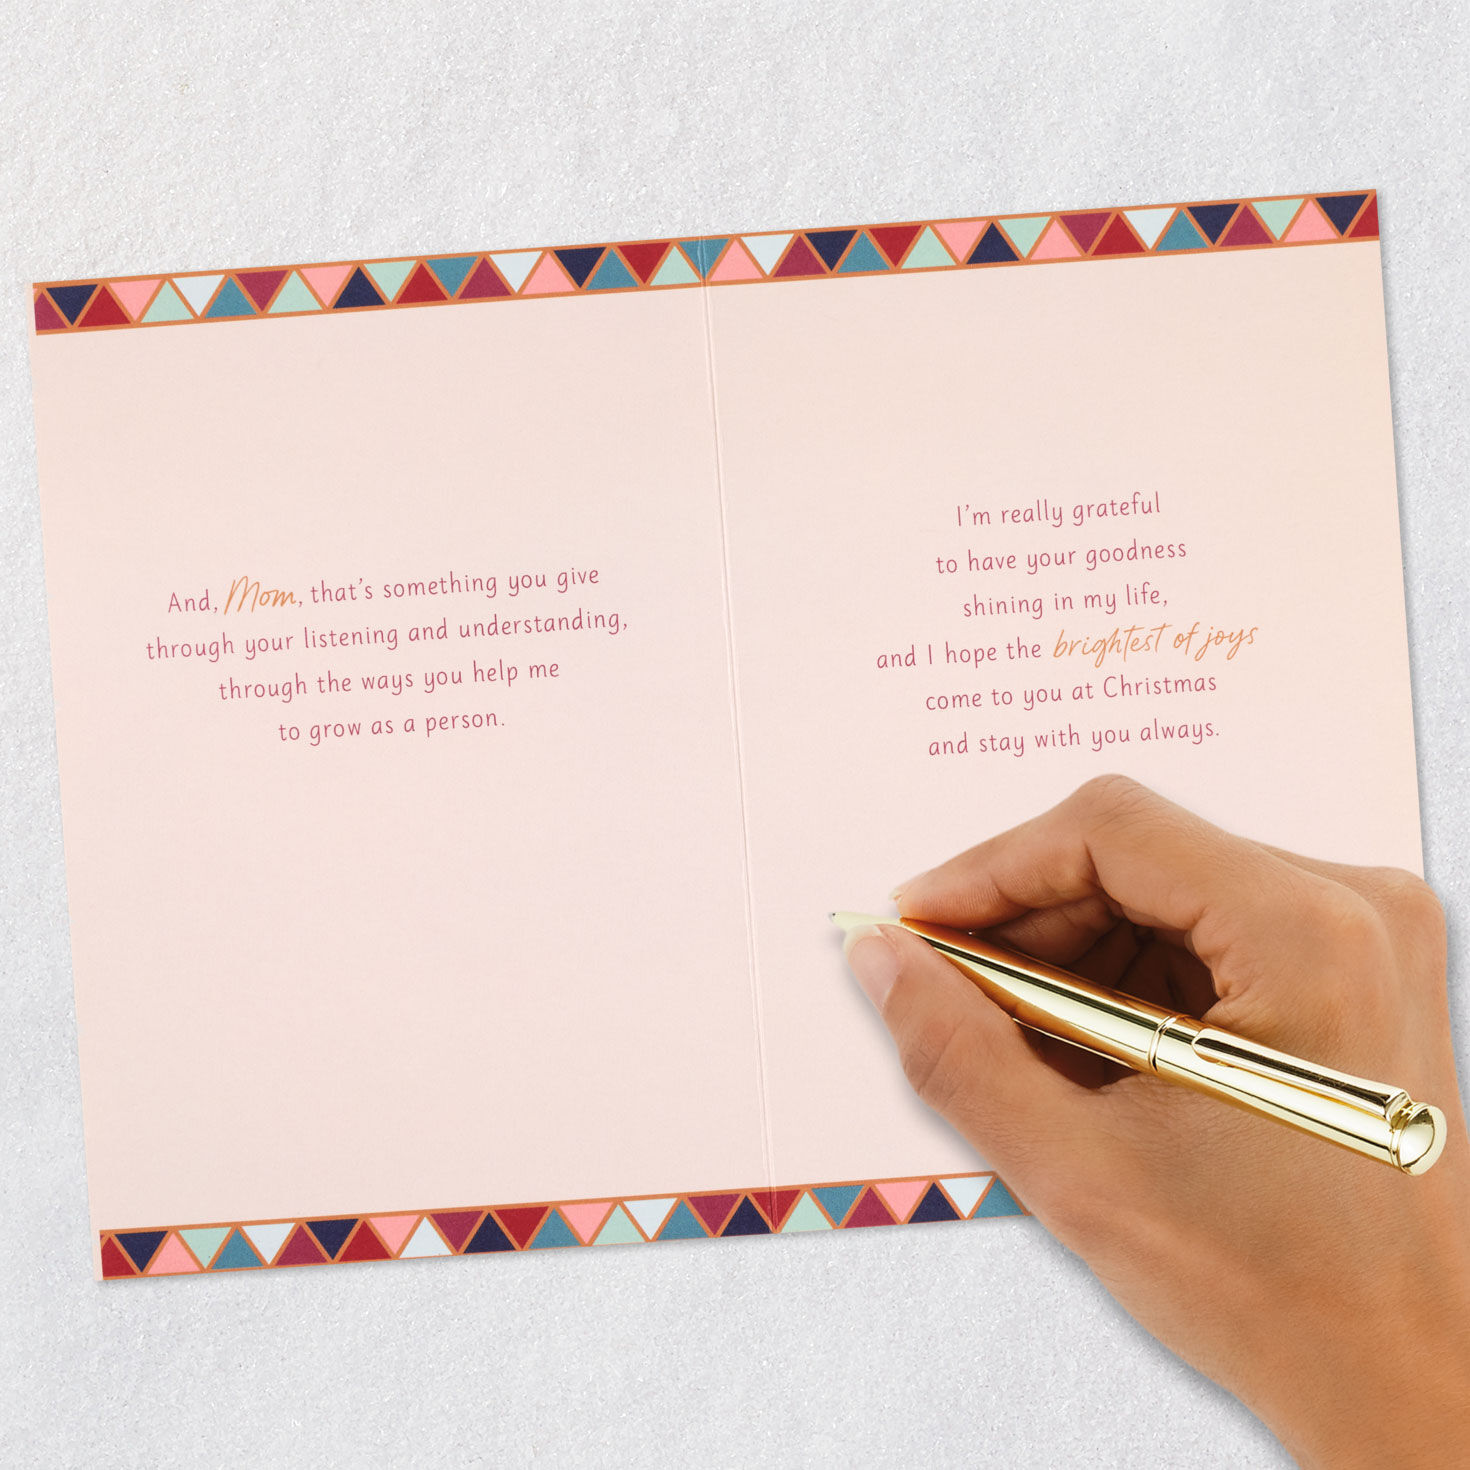 And, Mom, that's something you give
through your listening and understanding,
through the ways you help me
to grow as a person.
I'm really grateful
to have your goodness
shining in my life,
and I hope the brightest of joys
come to you at Christmas
and stay with you always.